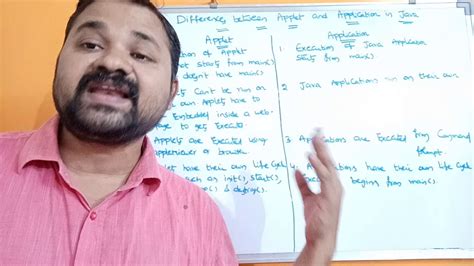 Difference between Applet and Application in Java
Applet
Application
of Applet
not starts from main()
doesn't have main()
1 Execution of Java Application
starts from main()
Can't be run on
own Applets have to
Embedded inside a web-
page to gets Executed.
2 Java Applications run on their own
Applets are Executed using
appletviewer or browser
3. Applications are Executed from Command
prompt.
have their own Life Cycle
such as init(), start(),
& destroy().
4. Applications have their own Life Cycle
begins from main().